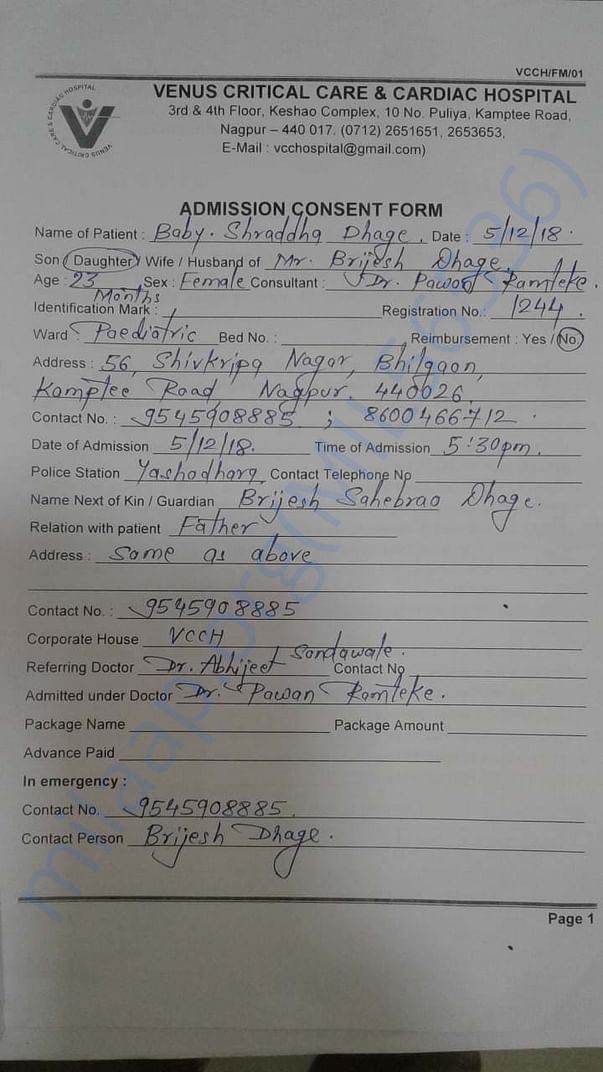 VCCH/FM/01
VENUS CRITICAL CARE & CARDIAC HOSPITAL
VENUS CRITICAL CARE & CARDIAC HOSPITAL
3rd & 4th Floor, Keshao Complex, 10 No. Puliya, Kamptee Road,
Nagpur – 440 017. (0712) 2651651, 2653653,
E-Mail : vcchospital@gmail.com)
ADMISSION CONSENT FORM
Name of Patient : Baby. Shraddha Dhage. Date : 5/12/18.
Son / Daughter / Wife / Husband of Mr. Brijesh Dhage.
Age : 23 Months Sex : Female Consultant : Dr. Pawan Ramteke.
Identification Mark : / Registration No.: 1244.
Ward : Paediatric Bed No. : Reimbursement : Yes / No
Address : 56, Shivkripa Nagar, Bhilgaon,
Kamptee Road, Nagpur. 440026.
Contact No. : 9545908885 ; 8600466712.
Date of Admission 5/12/18. Time of Admission 5:30pm.
Police Station Yashodhara Contact Telephone No
Name Next of Kin / Guardian Brijesh Sahebrao Dhage.
Relation with patient Father
Address : Same as above
Contact No. : 9545908885
Corporate House VCCH
Referring Doctor Dr. Abhijeet Sondawale. Contact No
Admitted under Doctor Dr. Pawan Ramteke.
Package Name Package Amount
Advance Paid
In emergency :
Contact No. 9545908885.
Contact Person Brijesh Dhage.
Page 1